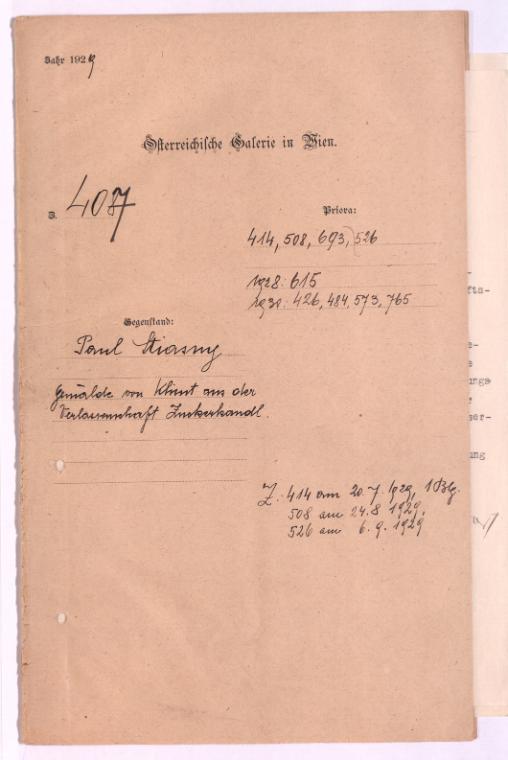 Jahr 1929
Österreichische Galerie in Wien.
Z. 407
Priora:
414, 508, 693, 526
1928: 615
1930: 426, 484, 573, 765
Gegenstand:
Paul Stiasny
Gemälde von Klimt aus der
Verlassenschaft Zuckerkandl.
Z. 414 am 20.7.1929, 1 Blg.
508 am 24.8 1929,
526 am 6.9.1929